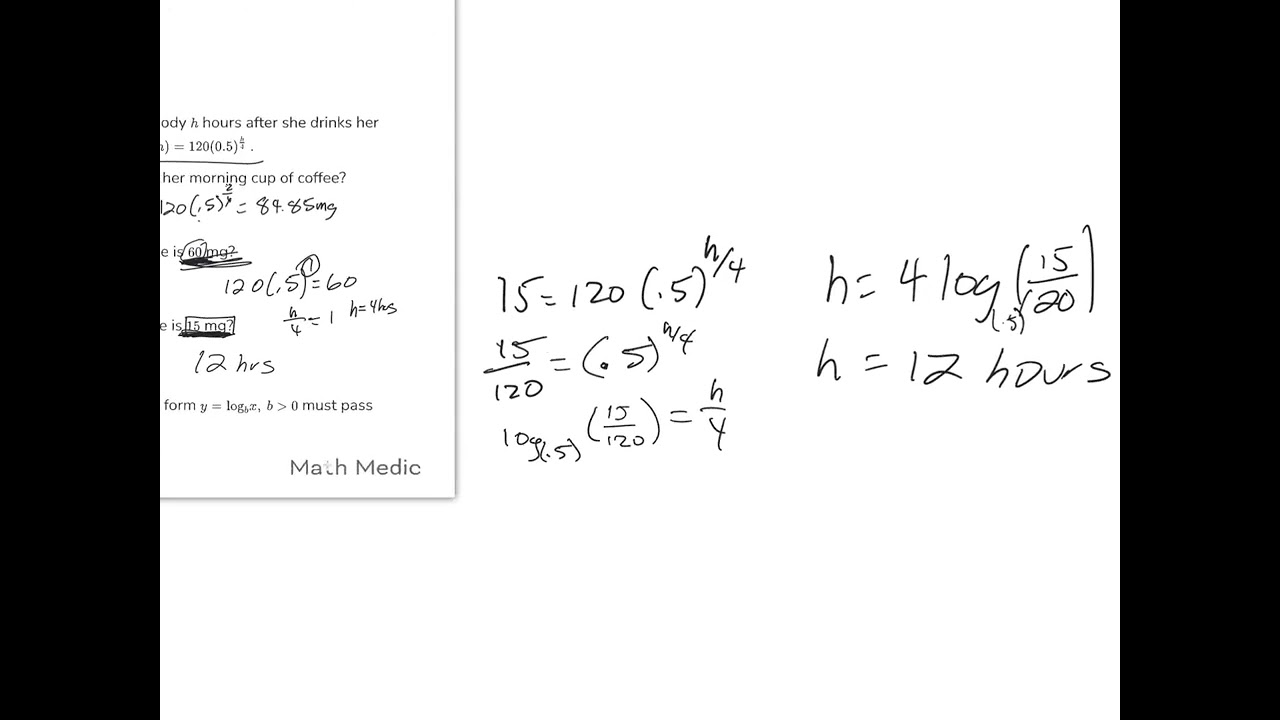 ody h hours after she drinks her
) = 120(0.5)^{h/4} .
her morning cup of coffee?
120(.5)^{2/4} = 84.85mg
e is 60 mg?
120(.5)^{1} = 60
h/4 = 1 h=4hrs
e is 15 mg?
12 hrs
form y = log_b x, b > 0 must pass
Math Medic
15 = 120 (.5)^{h/4}
15/120 = (.5)^{h/4}
log_(.5) (15/120) = h/4
h = 4 log_(.5) (15/120)
h = 12 hours